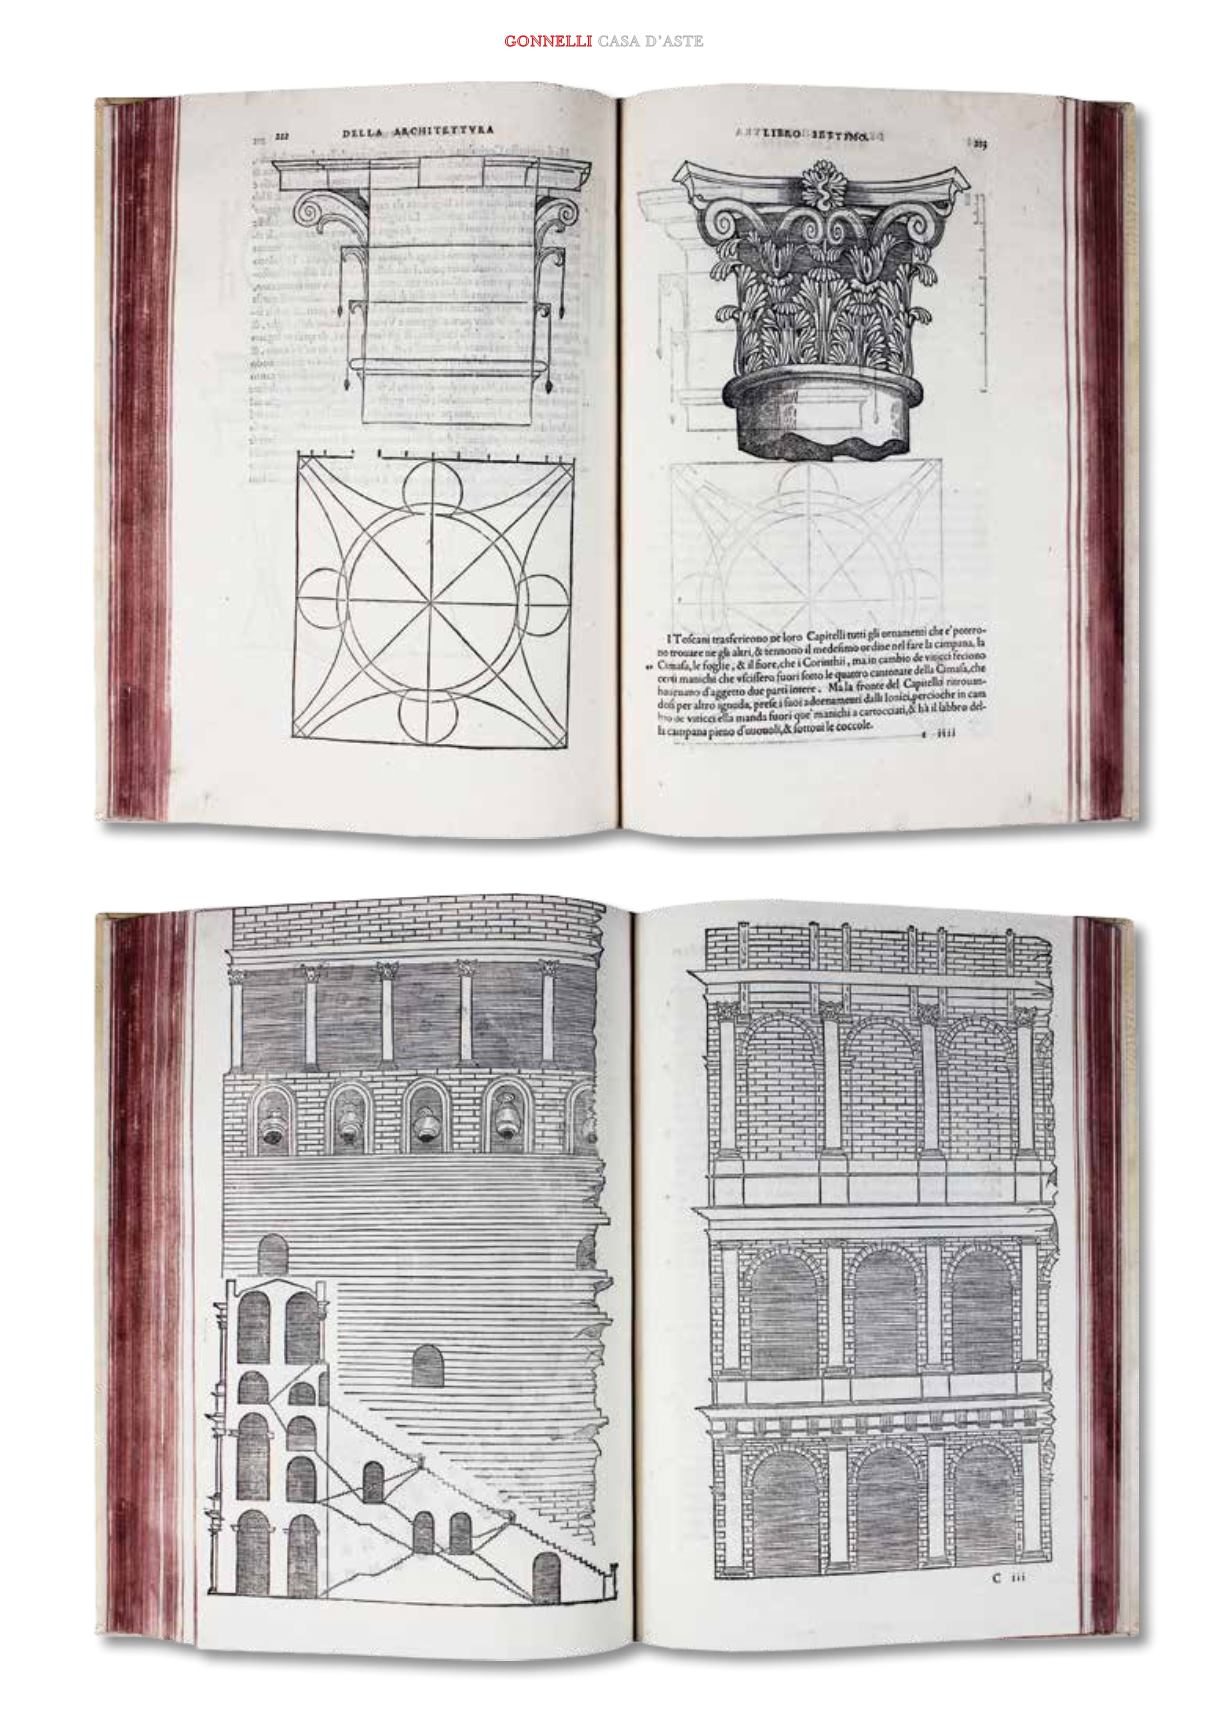 GONNELLI CASA D'ASTE
222
DELLA ARCHITETTVRA
LIBRO SETTIMO.
223
I Toscani trasferirono ne loro Capitelli tutti gli ornamenti che e' potero-
no trouare ne gli altri, & tennono il medesimo ordine nel fare la campana, la
Cimasa, le foglie, & il fiore, che i Corinthii, ma in cambio de viticci feciono
certi manichi che vscissero fuori sotto le quattro cantonate della Cimasa, che
haueuano d'aggetto due parti intere. Ma la fronte del Capitello ritrouan-
dosi per altro ignuda, prese i suoi adornamenti dalli Ionici, percioche in cam
bio de viticci ella manda fuori que' manichi a cartocciati, & hà il labbro del-
la campana pieno d'uuouoli, & sottoui le coccole.
iiii
C iii